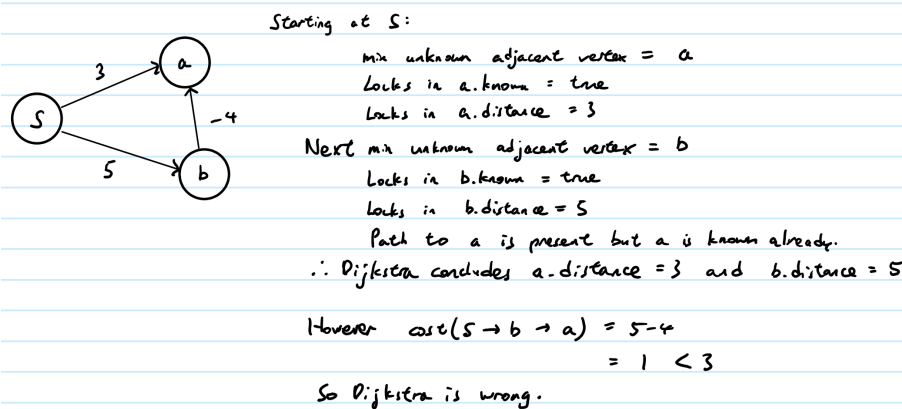 Starting at S:
min unknown adjacent vertex = a
Locks in a.known = true
Locks in a.distance = 3
Next min unknown adjacent vertex = b
Locks in b.known = true
Locks in b.distance = 5
Path to a is present but a is known already.
∴ Dijkstra concludes a.distance = 3 and b.distance = 5
However cost(S → b → a) = 5-4
= 1 < 3
So Dijkstra is wrong.
a
3
S
-4
5
b